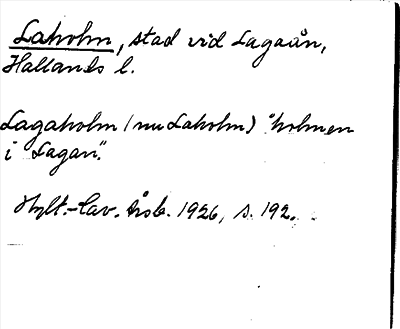 Laholm, stad vid Lagaån,
Hallands l.
Lagaholm (nu Laholm) "holmen
i Lagan".
Hylt.-Cav. årsb. 1926, s. 192.